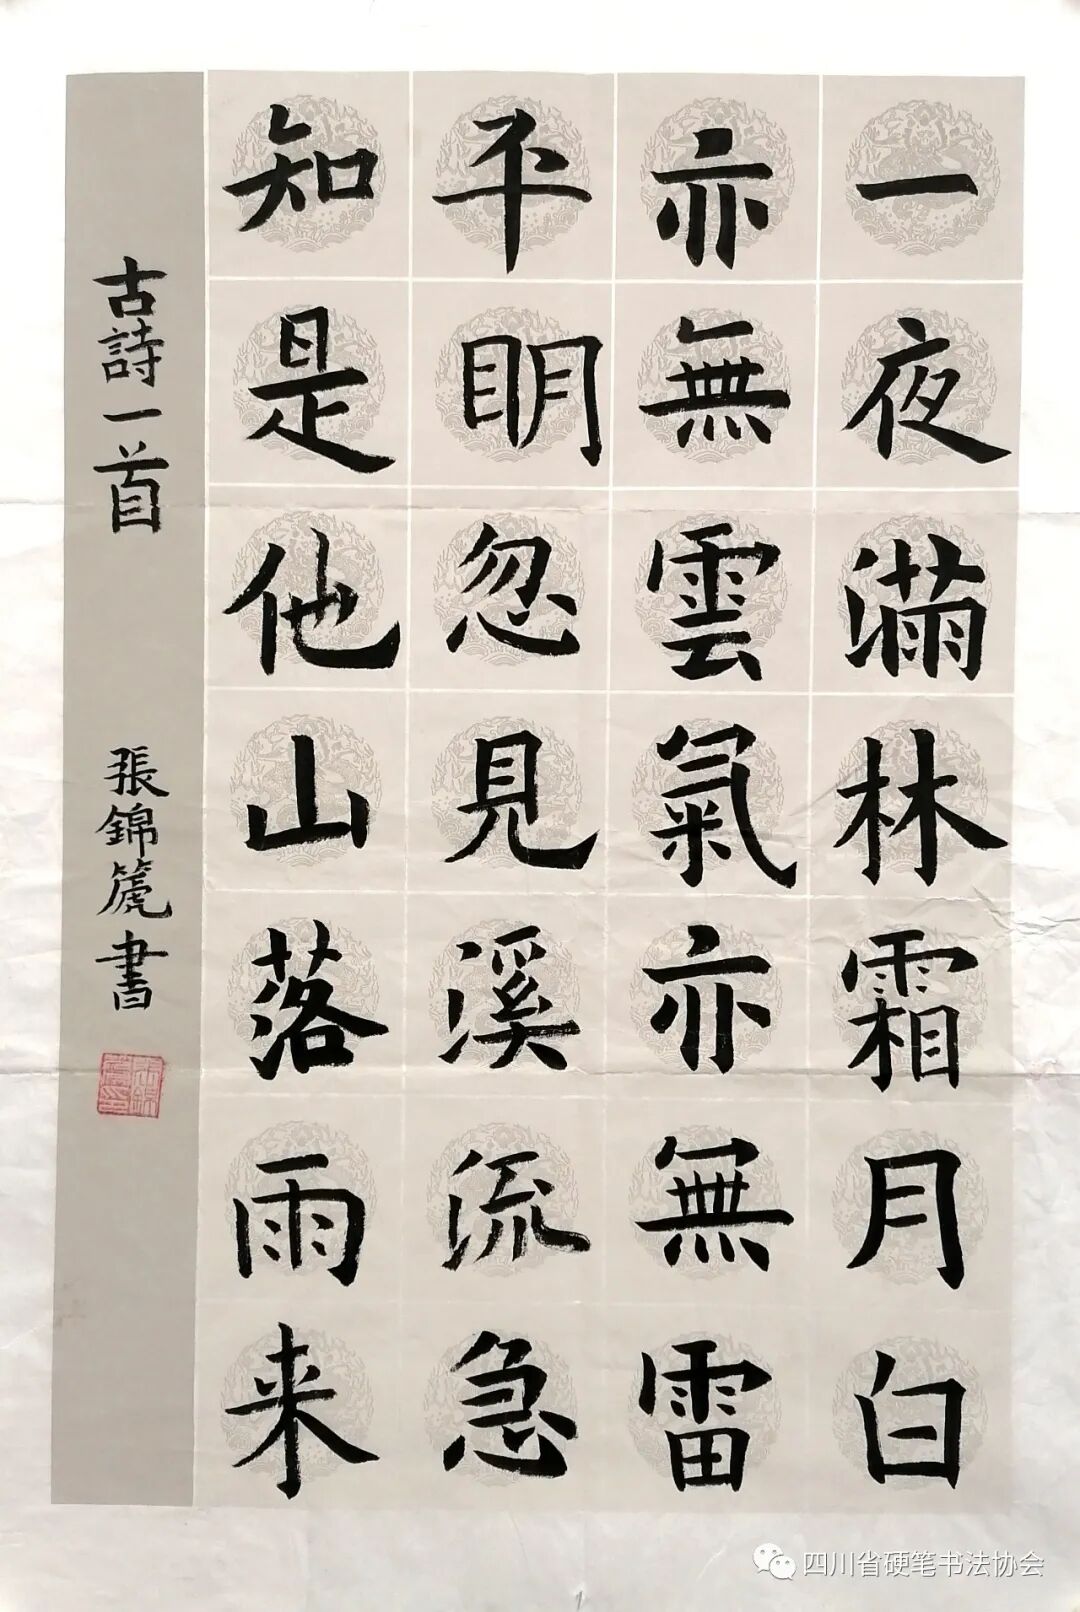 一夜滿林霜月白
亦無雲氣亦無雷
平明忽見溪流急
知是他山落雨来
古詩一首
張錦篪書
四川省硬笔书法协会